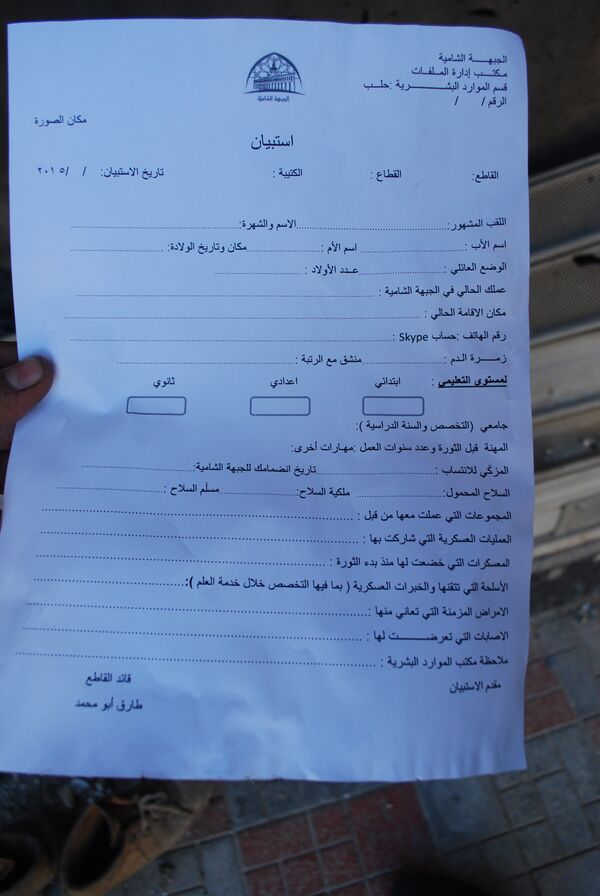 الجبهـــة الشامية
مكتـــب إدارة الملفـــات
قسم الموارد البشـــــــرية :حلـــب
الرقم / /
الجبهة الشامية
مكان الصورة
استبيان
القاطع: القطاع : الكتيبة : تاريخ الاستبيان: / /٢٠١٥
اللقب المشهور:........................الاسم والشهرة:........................
اسم الأب :........................اسم الأم :........................مكان وتاريخ الولادة: ........................
الوضع العائلي :........................عــدد الأولاد : ........................
عملك الحالي في الجبهة الشامية : ........................
مكان الاقامة الحالي : ........................
رقم الهاتف :حساب Skype : ........................
زمـــــرة الـدم :........................منشق مع الرتبة : ........................
لمستوى التعليمي : ابتدائي اعدادي ثانوي
جامعي (التخصص والسنة الدراسية ):
المهنة قبل الثورة وعدد سنوات العمل :مهارات أخرى:
المزكّي للانتساب :........................تاريخ انضمامك للجبهة الشامية:........................
السلاح المحمول:........................ملكية السلاح:........................مسلّم السلاح : ........................
المجموعات التي عملت معها من قبل : ........................
العمليات العسكرية التي شاركت بها : ........................
المعسكرات التي خضعت لها منذ بدء الثورة : ........................
الأسلحة التي تتقنها والخبرات العسكرية ( بما فيها التخصص خلال خدمة العلم ):........................
الامراض المزمنة التي تعاني منها:........................
الاصابات التي تعرضـــــــت لها : ........................
ملاحظة مكتب الموارد البشرية : ........................
مقدم الاستبيان قائد القاطع
طارق أبو محمد